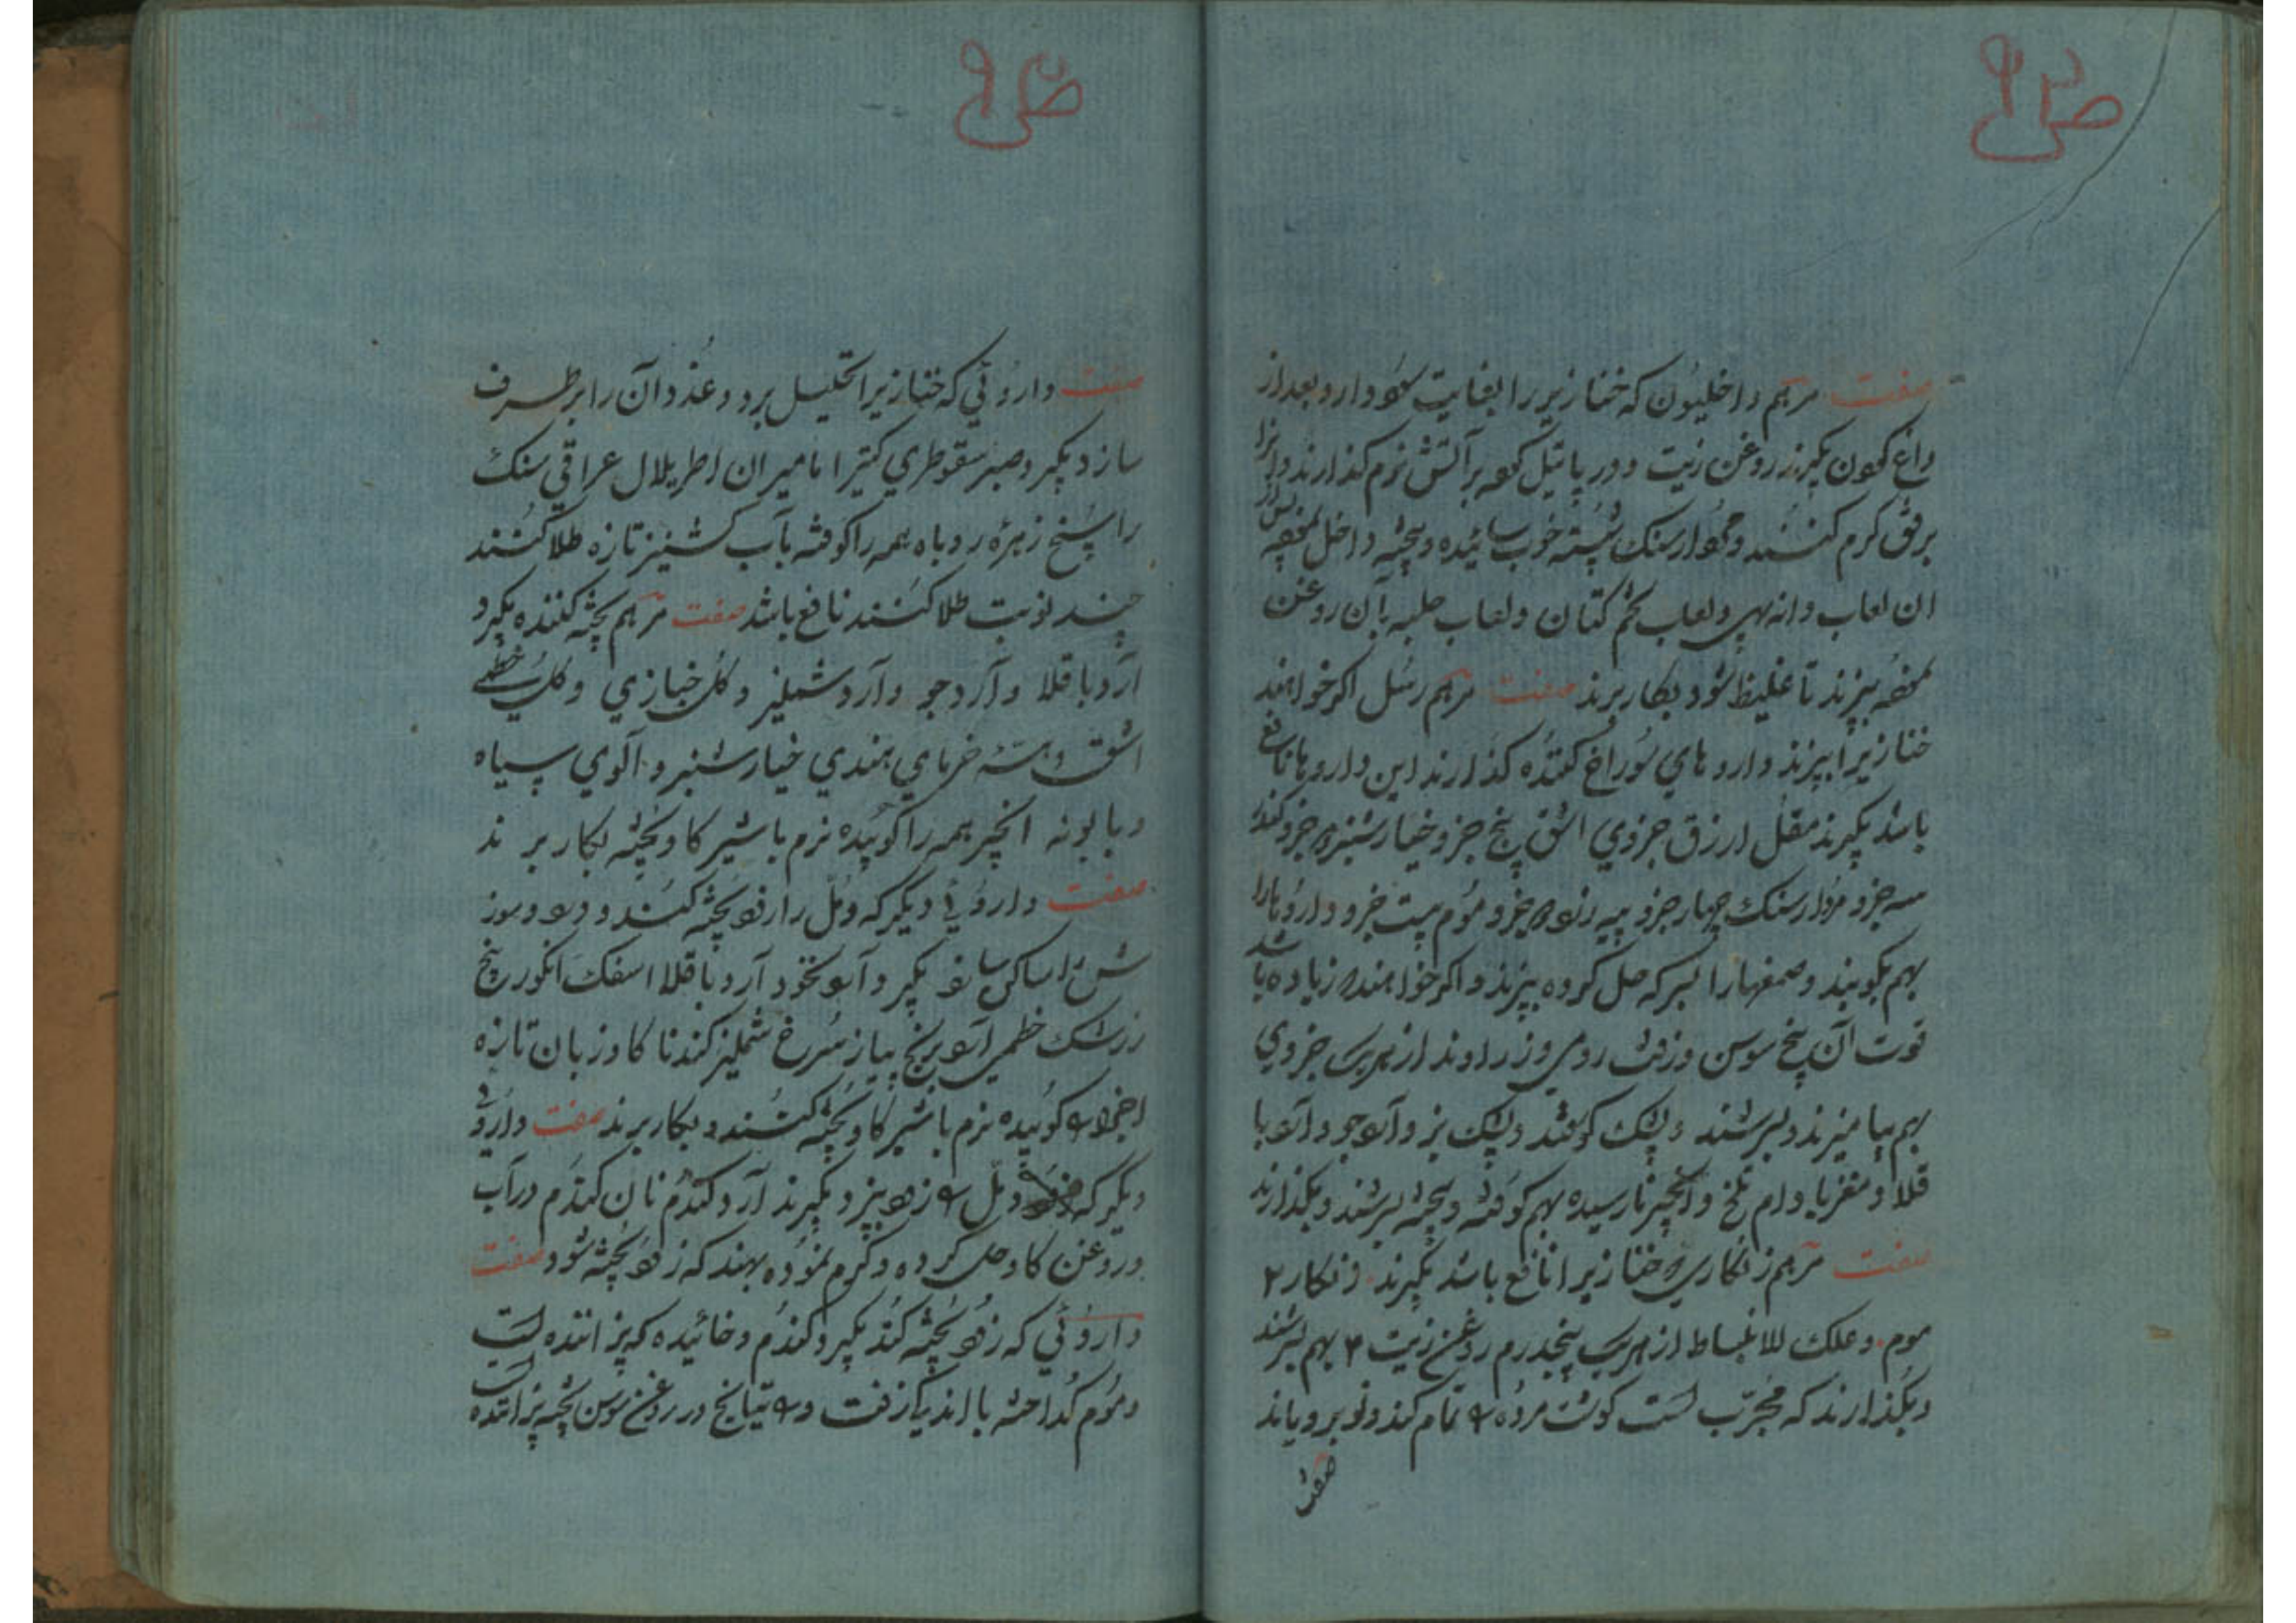 صفت مرهم داخلیون که خنازیر را بغایت سود دارد بعد از
داغ کردن بگیرند روغن زیت و در پاتیل کرده بر آتش نرم گذارند و آنرا
برفق گرم کنند و مردار سنگ شسته خوب سائیده و پخته داخل نموده
ان لعاب دانه بهی و لعاب تخم کتان و لعاب حلبه بآن روغن
نموده بپزند تا غلیظ شود بکار برند صفت مرهم رسل اکر خواهند
خنازیر را بپزند داروهای سوراخ کننده گذارند این داروها نافع
باشد بگیرند مقل ارزق جزوی اشق پنج جزو خیارشنبر جزو
سه جزو مردار سنک چهار جزو پیه جزو موم بیست جزو داروها را
بهم بکوبند و صمغهارا بسرکه حل کرده بپزند و اکر خواهند زیاده باشد
قوت آن بیخ سوسن و زفت رومی و زراوند از هریک جزوی
بهم بیامیزند و بسرشند و پشک کوسفند و پشک بز و آرد جو و آرد با
قلا و مغز بادام تلخ و انجیر نارسیده بهم کوفته و پخته بسرشند و بکذارند
صفت مرهم زنکاری خنازیر را نافع باشد بگیرند زنکار ۲
موم و علک للانبساط از هریک پنجدرم روغن زیت ۳ بهم بسرشند
و بکذارند که مجرّب است کوشت مرده تمام کند و نو برویاند
صفت
صفت داروئی که خنازیر را تحلیل برد و غدد آن را بر طرف
سازد بگیرد صبر سقوطری کتیرا مامیران اطریلال عراقی سنک
راسخ زهرهٔ روباه همه را کوفته بآب کشنیز تازه طلا کنند
چند نوبت طلا کنند نافع باشد صفت مرهم پخته کننده بگیرد
آرد باقلا و آرد جو و آرد شملیز و کل خبازی و کل خطمی
اشق و هسته خرمای هندی خیارشنبر و آلوی سیاه
و بابونه انجیر همه را کوبیده نرم با شیر کاو پخته بکار برند
صفت داروئی دیگر که دمّل را زود پخته کند و درد و سوز
ش را ساکن سازد بگیرد آرد نخود آرد باقلا اسفک انکور بیخ
زرشک خطمی آرد برنج پیاز سرخ شملیز کندنا کاوزبان تازه
اجزا را کوبیده نرم با شیر کاو پخته کنند و بکار برند صفت داروئی
دیگر که دمل را زود بپزد بگیرند آرد کندم نان کندم در آب
و روغن کاو حل کرده و کرم نموده بهند که زود پخته شود صفت
داروئی که زود پخته کند بگیرد کندم و خائیده که پزاننده است
و موم کداخته با اندک زفت و راتیانج در روغن سوسن پخته پزاننده است